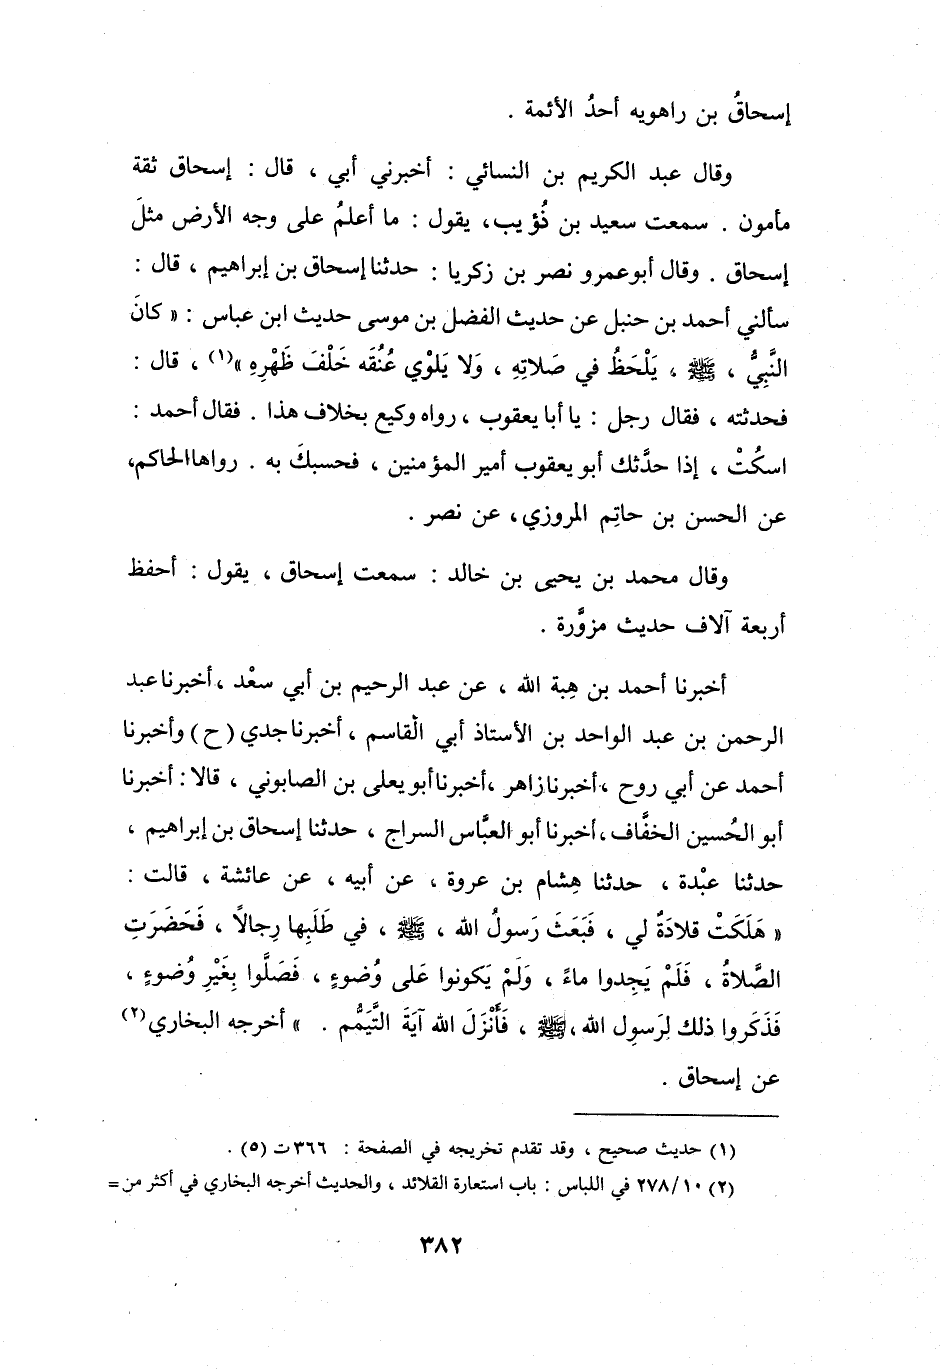 إسحاقُ بن راهويه أحدُ الأئمة .
وقال عبد الكريم بن النسائي : أخبرني أبي ، قال : إسحاق ثقة
مأمون . سمعت سعيد بن ذُؤيب، يقول : ما أعلمُ على وجه الأرض مثلَ
إسحاق . وقال أبو عمرو نصر بن زكريا : حدثنا إسحاق بن إبراهيم ، قال :
سألني أحمد بن حنبل عن حديث الفضل بن موسى حديث ابن عباس : « كانَ
النَّبِيُّ ، ﷺ ، يَلْحَظُ في صَلاتِهِ ، وَلا يَلوْي عُنُقَه خَلْفَ ظَهْرِهِ »(١) ، قال :
فحدثته ، فقال رجل : يا أبا يعقوب ، رواه وكيع بخلاف هذا . فقال أحمد :
اسكُتْ ، إذا حدَّثك أبو يعقوب أمير المؤمنين ، فحسبكَ به . رواها الحاكم،
عن الحسن بن حاتِم المروزي، عن نصر .
وقال محمد بن يحيى بن خالد : سمعت إسحاق ، يقول : أحفظ
أربعة آلاف حديث مزوَّرة .
أخبرنا أحمد بن هِبة الله ، عن عبد الرحيم بن أبي سعْد ، أخبرنا عبد
الرحمن بن عبد الواحد بن الأستاذ أبي القاسم ، أخبرنا جدي ( ح ) وأخبرنا
أحمد عن أبي روح ، أخبرنا زاهر ، أخبرنا أبو يعلى بن الصابوني ، قالا : أخبرنا
أبو الحُسين الخفَّاف ، أخبرنا أبو العبَّاس السراج ، حدثنا إسحاق بن إبراهيم ،
حدثنا عبْدة ، حدثنا هِشام بن عروة ، عن أبيه ، عن عائشة ، قالت :
« هَلَكَتْ قلادَةٌ لي ، فَبَعَثَ رَسولُ الله ، ﷺ ، في طَلَبِها رِجالاً ، فَحَضَرَتِ
الصَّلاةُ ، فَلَمْ يَجِدوا ماءً ، وَلَمْ يَكونوا عَلى وُضوءٍ ، فَصَلَّوا بِغَيْرِ وُضوءٍ ،
فَذَكَروا ذلك لِرَسولِ الله ، ﷺ ، فَأَنْزَلَ الله آيَةَ التَّيَمُّم . » أخرجه البخاري(٢)
عن إسحاق .
(١) حديث صحيح ، وقد تقدم تخريجه في الصفحة : ٣٦٦ ت (٥) .
(٢) ٢٧٨/١٠ في اللباس : باب استعارة القلائد ، والحديث أخرجه البخاري في أكثر من =
٣٨٢